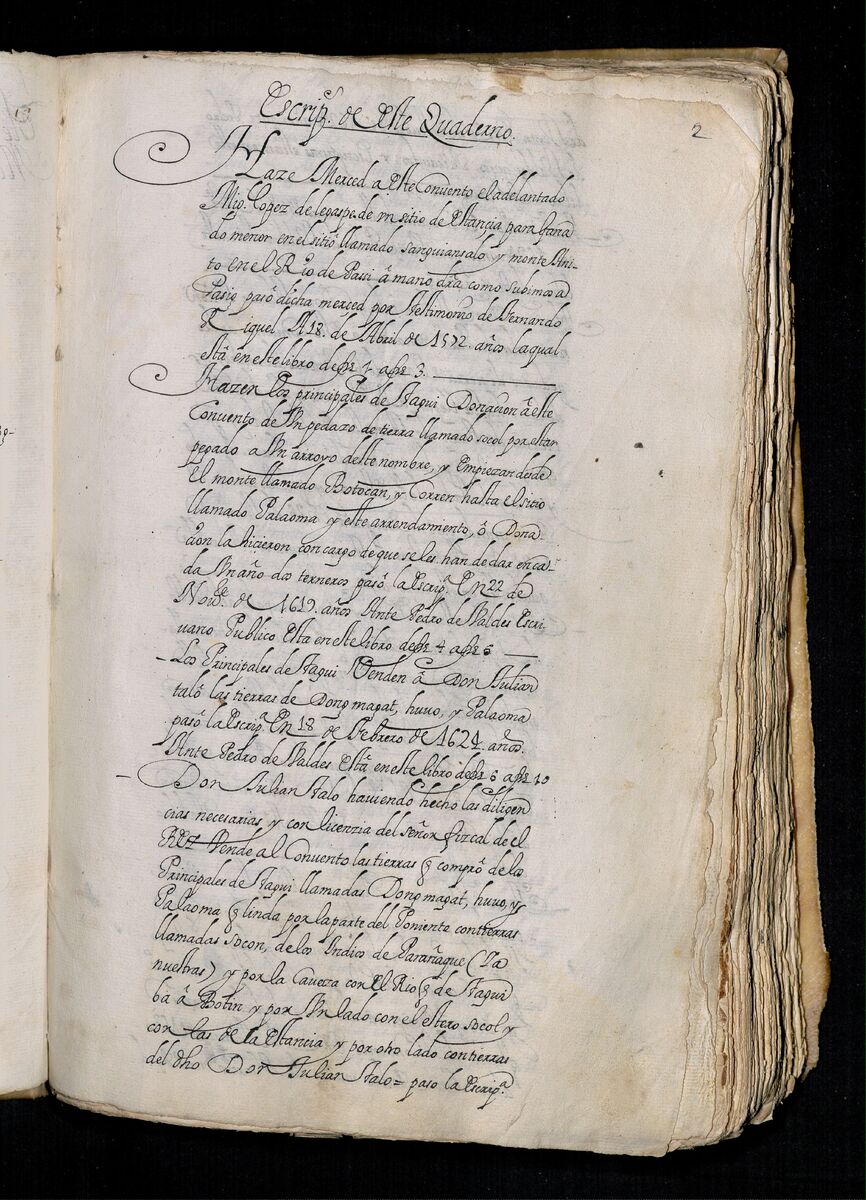 Escripª. de este Quaderno.
2
Haze Merced a este Convento el adelantado
Mig. Lopez de legaspe de vn sitio de estancia para gana
do menor en el sitio llamado sanguiansalo y monte Ani-
to en el Rio de Passi â mano dra como subimos a
Pasig pasô dicha merced por testimonio de Fernando
Riquel A 18. de Abril de 1572. años la qual
està en este libro de fs 1 a fs 3.
Hazen los principales de tagui Donacion â este
Convento de Vn pedazo de tierra llamado socol por estar
pegado a Vn arroyo deste nombre, y Empiezan desde
El monte llamado Botocan, y Corren hasta el sitio
llamado Palaoma y este arrendamento, ô Dona
cion la hicieron con cargo de que se les han de dar en ca-
da Vn año dos terneros pasô la Escripª. En 22 de
Nove. de 1619. años Ante Pedro de Valdes Escri-
uano Publico Esta en este libro de fs 4 a fs 6
- Los Principales de tagui Venden â Don Julian
talô las tierras de Dongmagat, huvo, y Palaoma
pasô la escripª. En 18 de Febrero de 1624. años.
Ante Pedro de Valdes Està en este libro de fs 6 a fs 10
- Don Julian talo haviendo hecho las diligen
cias necesarias y con licenzia del señor fizcal de el
Rey Vende al Convento las tierras q comprô de los
Principales de tagui llamadas Dongmagat, huvo, y
Palaoma q linda por la parte del Poniente con tierras
llamadas socon, de los Indios de Parañaque (Ya
nuestras) y por la Caveza con el Rio q de tagui
ba â Botin y por Vn lado con el estero socol y
con las de la estancia y por otro lado con tierras
del dho Don Julian talo = paso la Escripª.